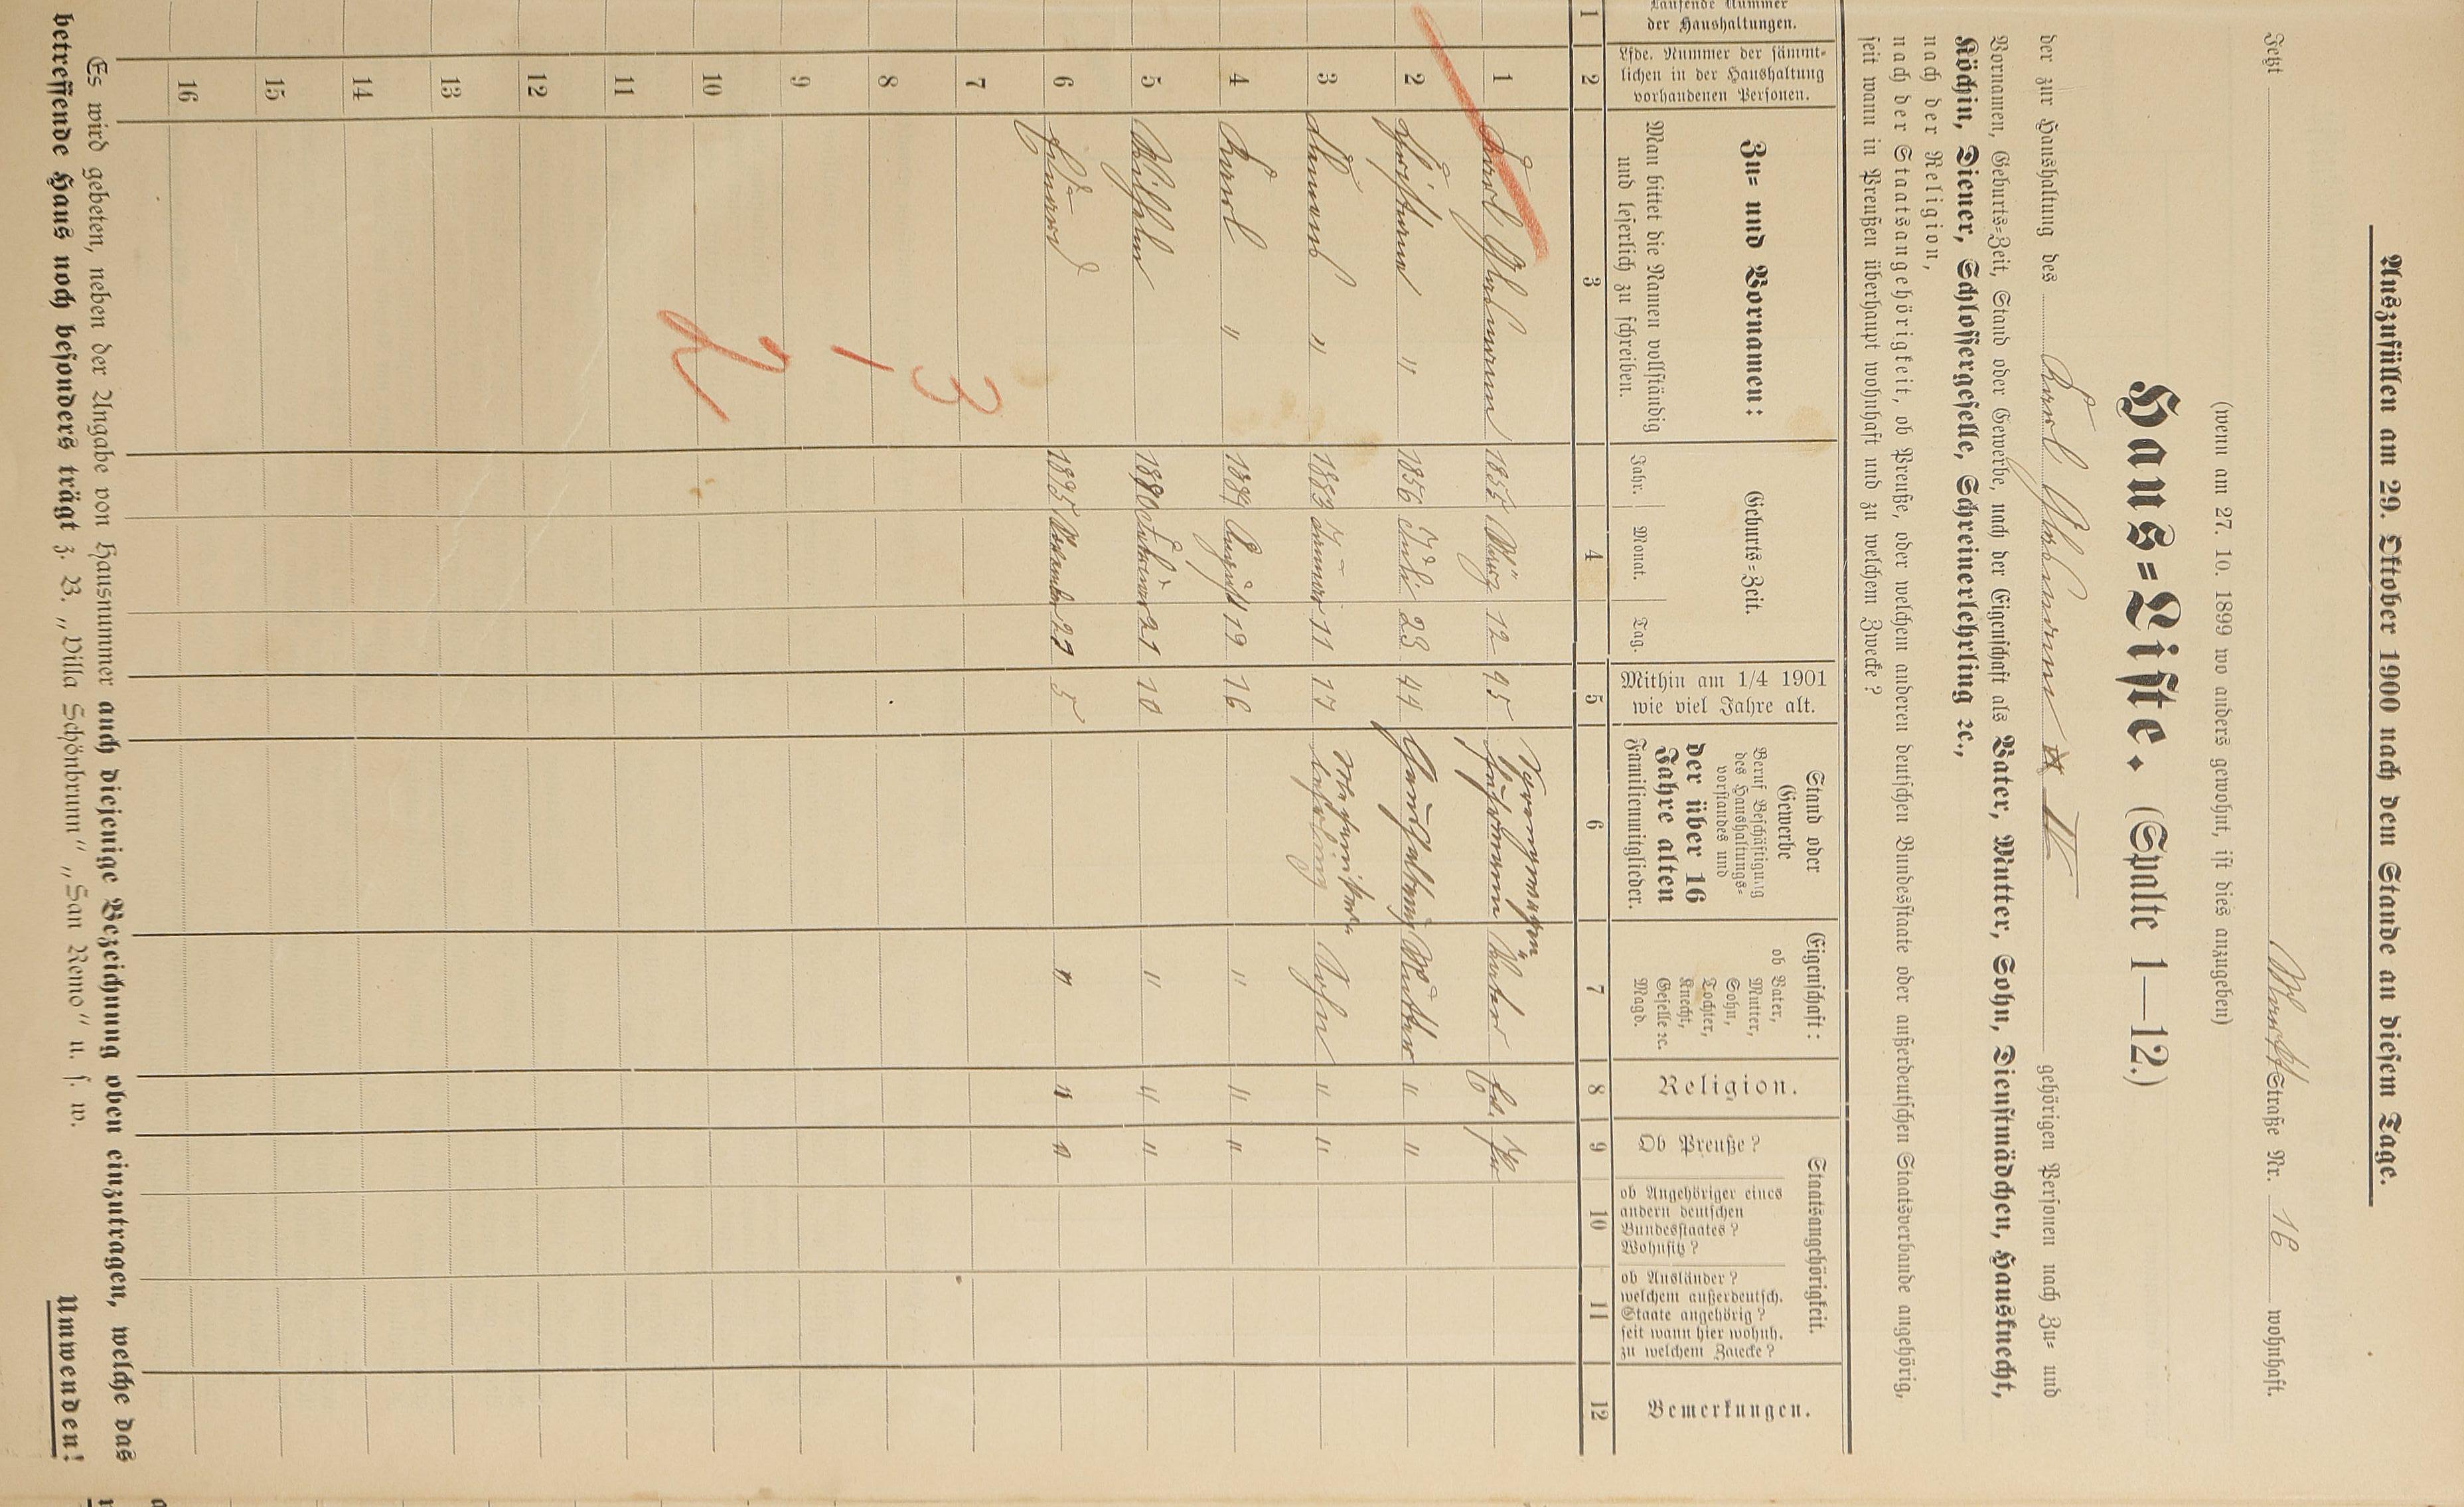 Auszufüllen am 29. Oktober 1900 nach dem Stande an diesem Tage.
Jetzt Straße Nr. 16 wohnhaft.
(wenn am 27. 10. 1899 wo anders gewohnt, ist dies anzugeben)
Haus=Liste. (Spalte 1—12.)
der zur Haushaltung des Karl II gehörigen Personen nach Zu= und
Vornamen, Geburts=Zeit, Stand oder Gewerbe, nach der Eigenschaft als Vater, Mutter, Sohn, Dienstmädchen, Hausknecht,
Köchin, Diener, Schlossergeselle, Schreinerlehrling ꝛc.,
nach der Religion,
nach der Staatsangehörigkeit, ob Preuße, oder welchem anderen deutschen Bundesstaate oder außerdeutschen Staatsverbande angehörig,
seit wann in Preußen überhaupt wohnhaft und zu welchem Zwecke?
Laufende Nummer
der Haushaltungen.
Lfde. Nummer der sämmt-
lichen in der Haushaltung
vorhandenen Personen.
Zu= und Vornamen:
Man bittet die Namen vollständig
und leserlich zu schreiben.
Geburts=Zeit.
Jahr. Monat. Tag.
Mithin am 1/4 1901
wie viel Jahre alt.
Stand oder
Gewerbe
Beruf Beschäftigung
des Haushaltungs-
vorstandes und
der über 16
Jahre alten
Familienmitglieder.
Eigenschaft:
ob Vater,
Mutter,
Sohn,
Tochter,
Knecht,
Geselle ꝛc.
Magd.
Religion.
Staatsangehörigkeit.
Ob Preuße?
ob Angehöriger eines
andern deutschen
Bundesstaates?
Wohnsitz?
ob Ausländer?
welchem außerdeutsch.
Staate angehörig?
seit wann hier wohnh.
zu welchem Zwecke?
Bemerkungen.
1 2 3 4 5 6 7 8 9 10 11 12
1 Karl März 12 45 Vater Ev. Pr
2 " 1856 Juli 23 44 Haushaltung Mutter " "
3 " 1883 Januar 11 17 Sohn " "
4 Karl " 1884 August 19 16 " " "
5 Wilhelm 1890 Februar 21 10 " " "
6 Eduard 1895 5 " " "
7
8
9
10
11
12
13
14
15
16
3
Es wird gebeten, neben der Angabe von Hausnummer auch diejenige Bezeichnung oben einzutragen, welche das
betreffende Haus noch besonders trägt z. B. „Villa Schönbrunn" „San Remo" u. s. w.
Umwenden!